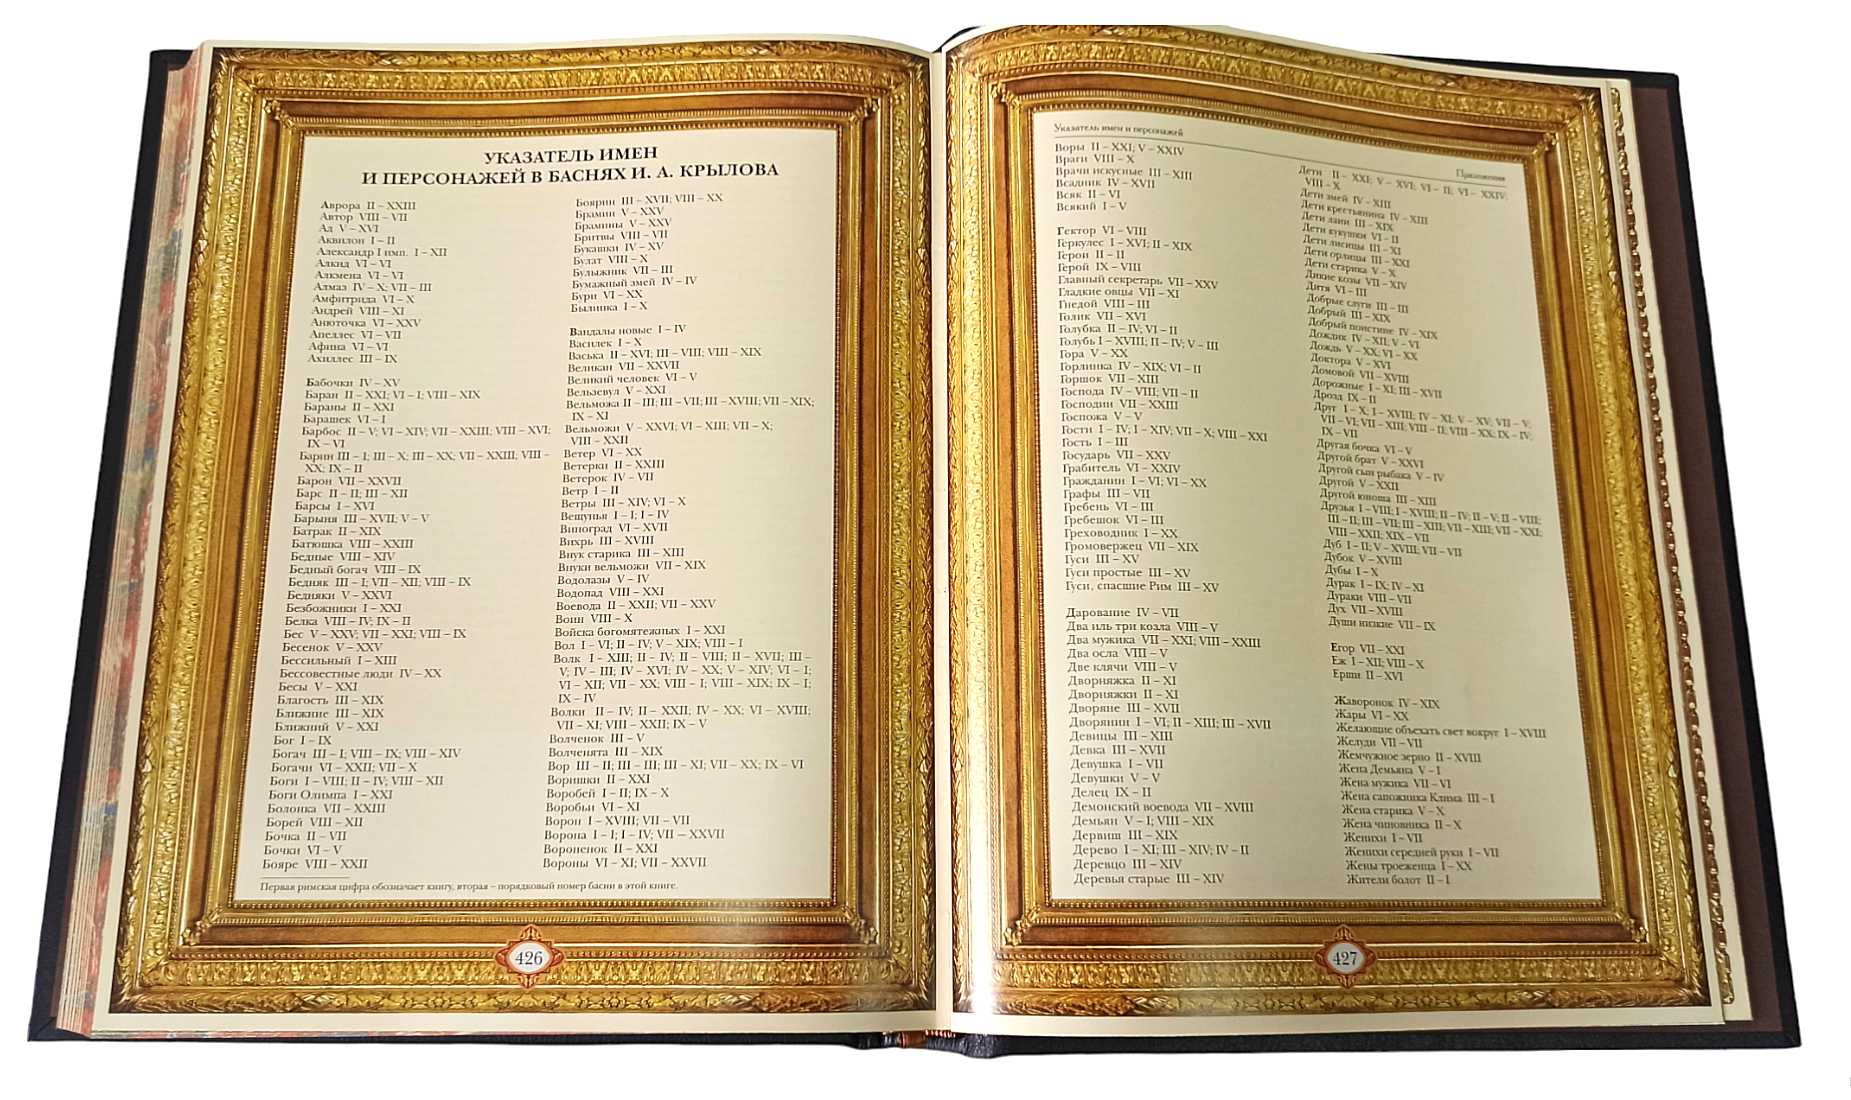 УКАЗАТЕЛЬ ИМЕН
И ПЕРСОНАЖЕЙ В БАСНЯХ И. А. КРЫЛОВА
Аврора II – XXIII
Автор VIII – VII
Ад V – XVI
Аквилон I – II
Александр I имп. I – XII
Алкид VI – VI
Алкмена VI – VI
Алмаз IV – X; VII – III
Амфитрида VI – X
Андрей VIII – XI
Анюточка VI – XXV
Апеллес VI – VII
Афина VI – VI
Ахиллес III – IX
Бабочки IV – XV
Баран II – XXI; VI – I; VIII – XIX
Бараны II – XXI
Барашек VI – I
Барбос II – V; VI – XIV; VII – XXIII; VIII – XVI;
IX – VI
Барин III – I; III – X; III – XX; VII – XXIII; VIII –
XX; IX – II
Барон VII – XXVII
Барс II – II; III – XII
Барсы I – XVI
Барыня III – XVII; V – V
Батрак II – XIX
Батюшка VIII – XXIII
Бедные VIII – XIV
Бедный богач VIII – IX
Бедняк III – I; VII – XII; VIII – IX
Бедняки V – XXVI
Безбожники I – XXI
Белка VIII – IV; IX – II
Бес V – XXV; VII – XXI; VIII – IX
Бесенок V – XXV
Бессильный I – XIII
Бессовестные люди IV – XX
Бесы V – XXI
Благость III – XIX
Ближние III – XIX
Ближний V – XXI
Бог I – IX
Богач III – I; VIII – IX; VIII – XIV
Богачи VI – XXII; VII – X
Боги I – VIII; II – IV; VIII – XII
Боги Олимпа I – XXI
Болонка VII – XXIII
Борей VIII – XII
Бочка II – VII
Бочки VI – V
Бояре VIII – XXII
Боярин III – XVII; VIII – XX
Брамин V – XXV
Брамины V – XXV
Бритвы VIII – VII
Букашки IV – XV
Булат VIII – X
Булыжник VII – III
Бумажный змей IV – IV
Бури VI – XX
Былинка I – X
Вандалы новые I – IV
Василек I – X
Васька II – XVI; III – VIII; VIII – XIX
Великан VII – XXVII
Великий человек VI – V
Вельзевул V – XXI
Вельможа II – III; III – VII; III – XVIII; VII – XIX;
IX – XI
Вельможи V – XXVI; VI – XIII; VII – X;
VIII – XXII
Ветер VI – XX
Ветерки II – XXIII
Ветерок IV – VII
Ветр I – II
Ветры III – XIV; VI – X
Вещунья I – I; I – IV
Виноград VI – XVII
Вихрь III – XVIII
Внук старика III – XIII
Внуки вельможи VII – XIX
Водолазы V – IV
Водопад VIII – XXI
Воевода II – XXII; VII – XXV
Воин VIII – X
Войска богомятежных I – XXI
Вол I – VI; II – IV; V – XIX; VIII – I
Волк I – XIII; II – IV; II – VIII; II – XVII; III –
V; IV – III; IV – XVI; IV – XX; V – XIV; VI – I;
VI – XII; VII – XX; VIII – I; VIII – XIX; IX – I;
IX – IV
Волки II – IV; II – XXII; IV – XX; VI – XVIII;
VII – XI; VIII – XXII; IX – V
Волченок III – V
Волченята III – XIX
Вор III – II; III – III; III – XI; VII – XX; IX – VI
Воришки II – XXI
Воробей I – II; IX – X
Воробьи VI – XI
Ворон I – XVIII; VII – VII
Ворона I – I; I – IV; VII – XXVII
Вороненок II – XXI
Вороны VI – XI; VII – XXVII
Первая римская цифра обозначает книгу, вторая – порядковый номер басни в этой книге.
426
Указатель имен и персонажей
Приложения
Воры II – XXI; V – XXIV
Враги VIII – X
Врачи искусные III – XIII
Всадник IV – XVII
Всяк II – VI
Всякий I – V
Гектор VI – VIII
Геркулес I – XVI; II – XIX
Герои II – II
Герой IX – VIII
Главный секретарь VII – XXV
Гладкие овцы VII – XI
Гнедой VIII – III
Голик VII – XVI
Голубка II – IV; VI – II
Голубь I – XVIII; II – IV; V – III
Гора V – XX
Горлинка IV – XIX; VI – II
Горшок VII – XIII
Господа IV – VIII; VII – II
Господин VII – XXIII
Госпожа V – V
Гости I – IV; I – XIV; VII – X; VIII – XXI
Гость I – III
Государь VII – XXV
Грабитель VI – XXIV
Гражданин I – VI; VI – XX
Графы III – VII
Гребень VI – III
Гребешок VI – III
Греховодник I – XX
Громовержец VII – XIX
Гуси III – XV
Гуси простые III – XV
Гуси, спасшие Рим III – XV
Дарование IV – VII
Два иль три козла VIII – V
Два мужика VII – XXI; VIII – XXIII
Два осла VIII – V
Две клячи VIII – V
Дворняжка II – XI
Дворняжки II – XI
Дворяне III – XVII
Дворянин I – VI; II – XIII; III – XVII
Девицы III – XIII
Девка III – XVII
Девушка I – VII
Девушки V – V
Делец IX – II
Демонский воевода VII – XVIII
Демьян V – I; VIII – XIX
Дервиш III – XIX
Дерево I – XI; III – XIV; IV – II
Деревцо III – XIV
Деревья старые III – XIV
Дети II – XXI; V – XVI; VI – II; VI – XXIV;
VIII – X
Дети змей IV – XIII
Дети крестьянина IV – XIII
Дети лани III – XIX
Дети кукушки VI – II
Дети лисицы III – XI
Дети орлицы III – XXI
Дети старика V – X
Дикие козы VII – XIV
Дитя VI – III
Добрые слуги III – III
Добрый III – XIX
Добрый поистине IV – XIX
Дождик IV – XII; V – VI
Дождь V – XX; VI – XX
Доктора V – XVI
Домовой VII – XVIII
Дорожные I – XI; III – XVII
Дрозд IX – II
Друг I – X; I – XVIII; IV – XI; V – XV; VII – V;
VII – VI; VII – XIII; VIII – II; VIII – XX; IX – IV;
IX – VII
Другая бочка VI – V
Другой брат V – XXVI
Другой сын рыбака V – IV
Другой V – XXII
Другой юноша III – XIII
Друзья I – VIII; I – XVIII; II – IV; II – V; II – VIII;
III – II; III – VII; III – XIII; VII – XIII; VII – XXI;
VIII – XXII; XIX – VII
Дуб I – II; V – XVIII; VII – VII
Дубок V – XVIII
Дубы I – X
Дурак I – IX; IV – XI
Дураки VIII – VII
Дух VII – XVIII
Души низкие VII – IX
Егор VII – XXI
Еж I – XII; VIII – X
Ерши II – XVI
Жаворонок IV – XIX
Жары VI – XX
Желающие объехать свет вокруг I – XVIII
Желуди VII – VII
Жемчужное зерно II – XVIII
Жена Демьяна V – I
Жена мужика VII – VI
Жена сапожника Клима III – I
Жена старика V – X
Жена чиновника II – X
Женихи I – VII
Женихи середней руки I – VII
Жены троеженца I – XX
Жители болот II – I
427